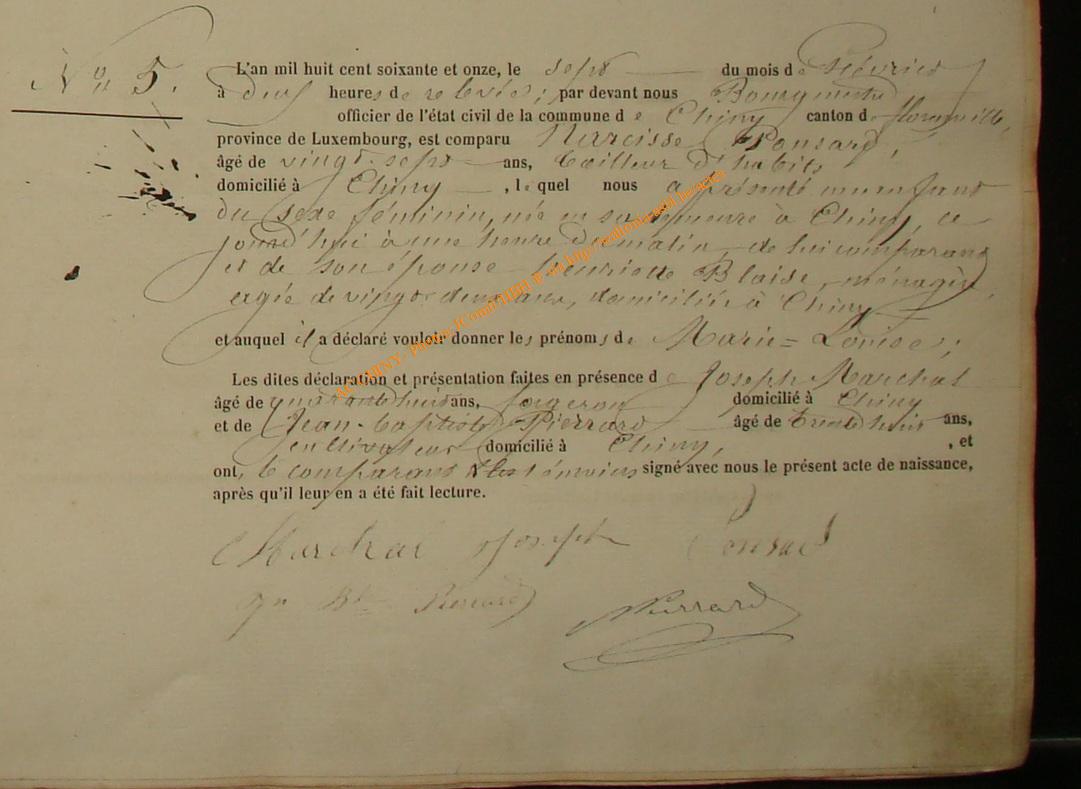 No 5.
L'an mil huit cent soixante et onze, le sept du mois de Février
à deux heures de relevée; par devant nous Bourgmestre
officier de l'état civil de la commune de Chiny canton de florenville,
province de Luxembourg, est comparu Narcisse Ponsard,
âgé de vingt-sept ans, tailleur d'habits
domicilié à Chiny, lequel nous a présenté un enfant
du sexe féminin, née en sa demeure à Chiny, ce
jourd'hui à une heure du matin, de lui comparant
et de son épouse Henriette Blaise, ménagère,
agée de vingt-deux ans, domiciliée à Chiny
et auquel il a déclaré vouloir donner les prénoms de Marie=Louise;
Les dites déclaration et présentation faites en présence de Joseph Marchal
âgé de quarante huit ans, forgeron domicilié à Chiny
et de Jean-Baptiste Pierrard âgé de trente huit ans,
cultivateur domicilié à Chiny, , et
ont, le comparant & les témoins signé avec nous le présent acte de naissance,
après qu'il leur en a été fait lecture.
Marchal Joseph Ponsard
Jn Bte Pierrard Pierrard